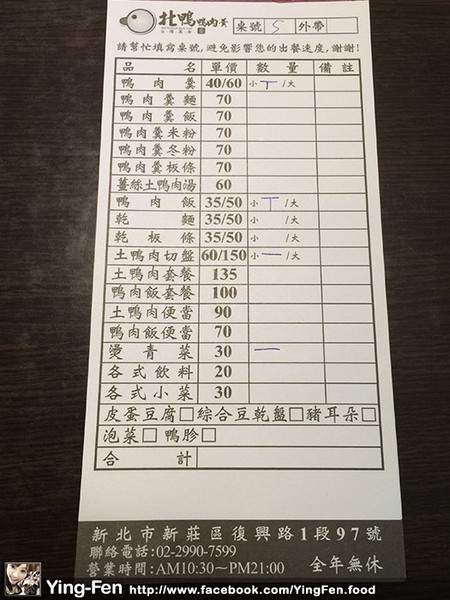 北鴨鴨肉羹 桌號 5 外帶
請幫忙填寫桌號,避免影響您的出餐速度,謝謝!
品名 單價 數量 備註
鴨肉羹 40/60 小 丅 /大
鴨肉羹麵 70
鴨肉羹飯 70
鴨肉羹米粉 70
鴨肉羹冬粉 70
鴨肉羹板條 70
薑絲土鴨肉湯 60
鴨肉飯 35/50 小 丅 /大
乾麵 35/50 小 /大
乾板條 35/50 小 /大
土鴨肉切盤 60/150 小 一 /大
土鴨肉套餐 135
鴨肉飯套餐 100
土鴨肉便當 90
鴨肉飯便當 70
燙青菜 30 一
各式飲料 20
各式小菜 30
皮蛋豆腐□綜合豆乾盤□豬耳朵□
泡菜□ 鴨胗□
合計
新北市新莊區復興路1段97號
聯絡電話:02-2990-7599
營業時間:AM10:30~PM21:00 全年無休
Ying-Fen http://www.facebook.com/YingFen.food